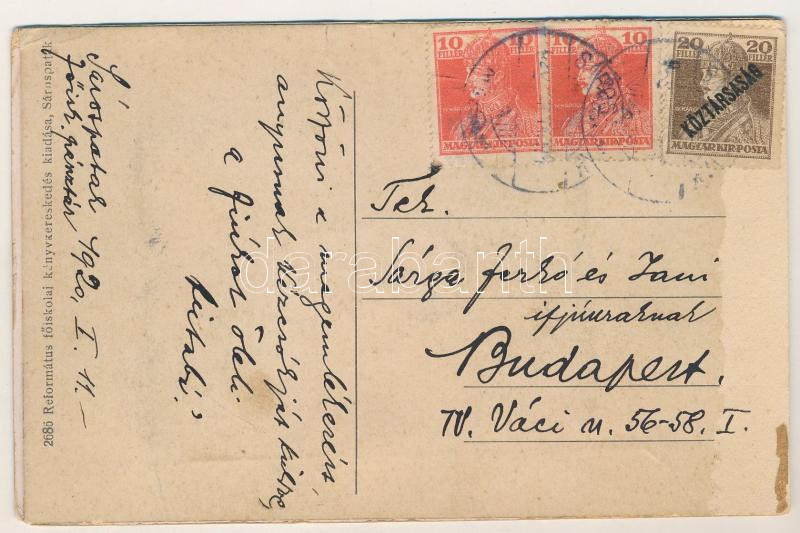 10 FILLÉR 10
MAGYAR KIR. POSTA
10 FILLÉR 10
MAGYAR KIR. POSTA
20 FILLÉR 20
KÖZTÁRSASÁG
MAGYAR KIR. POSTA
2685 Református főiskolai könyvkereskedés kiadása, Sárospatak
Sárospatak 1920. I. 11.-
Köszöni a megemlékezést,
anyumnak kézcsókját küldve,
a fiúkat öleli
Tek.
Sárga Ferkó és Jani
ifjúuraknak
Budapest.
IV. Váci u. 56-58. I.
darabanth